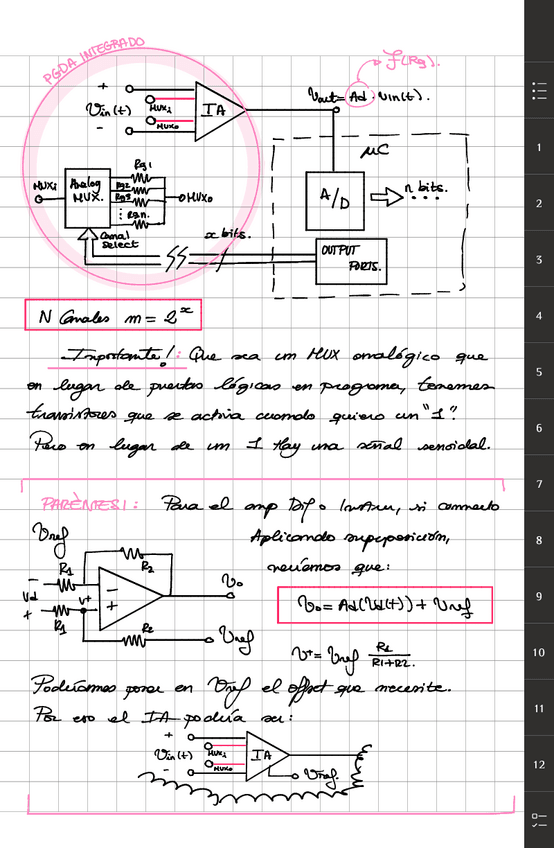 PGDA INTEGRADO
f(Rg).
+
Vin(t)
-
MUXi
MUXo
IA
Vout = Ad · Vin(t).
μC
MUXi
Analog
MUX.
Rg1
Rg2
Rg3
⋮ Rgn.
MUXo
A/D
n bits.
...
Canal
select
x bits.
OUTPUT
PORTS.
N Canales m = 2^x
Importante!: Que sea un MUX analógico que
en lugar de puertas lógicas en programa, tenemos
transistores que se activa cuando quiero un "1".
Pero en lugar de un 1 Hay una señal senoidal.
PARÈNTESI: Para el amp Dif o Instrum, si connecto
Vref
Aplicando superposición,
veríamos que:
R1
R2
-
Vd
+
V+
-
+
Vo
R1
R2
Vref
Vo = Ad(Vd(t)) + Vref
V+ = Vref R1/R1+R2.
Podríamos poner en Vref el offset que necesite.
Por eso el IA podría ser:
+
Vin(t)
-
MUXi
MUXo
IA
Vref.
1
2
3
4
5
6
7
8
9
10
11
12